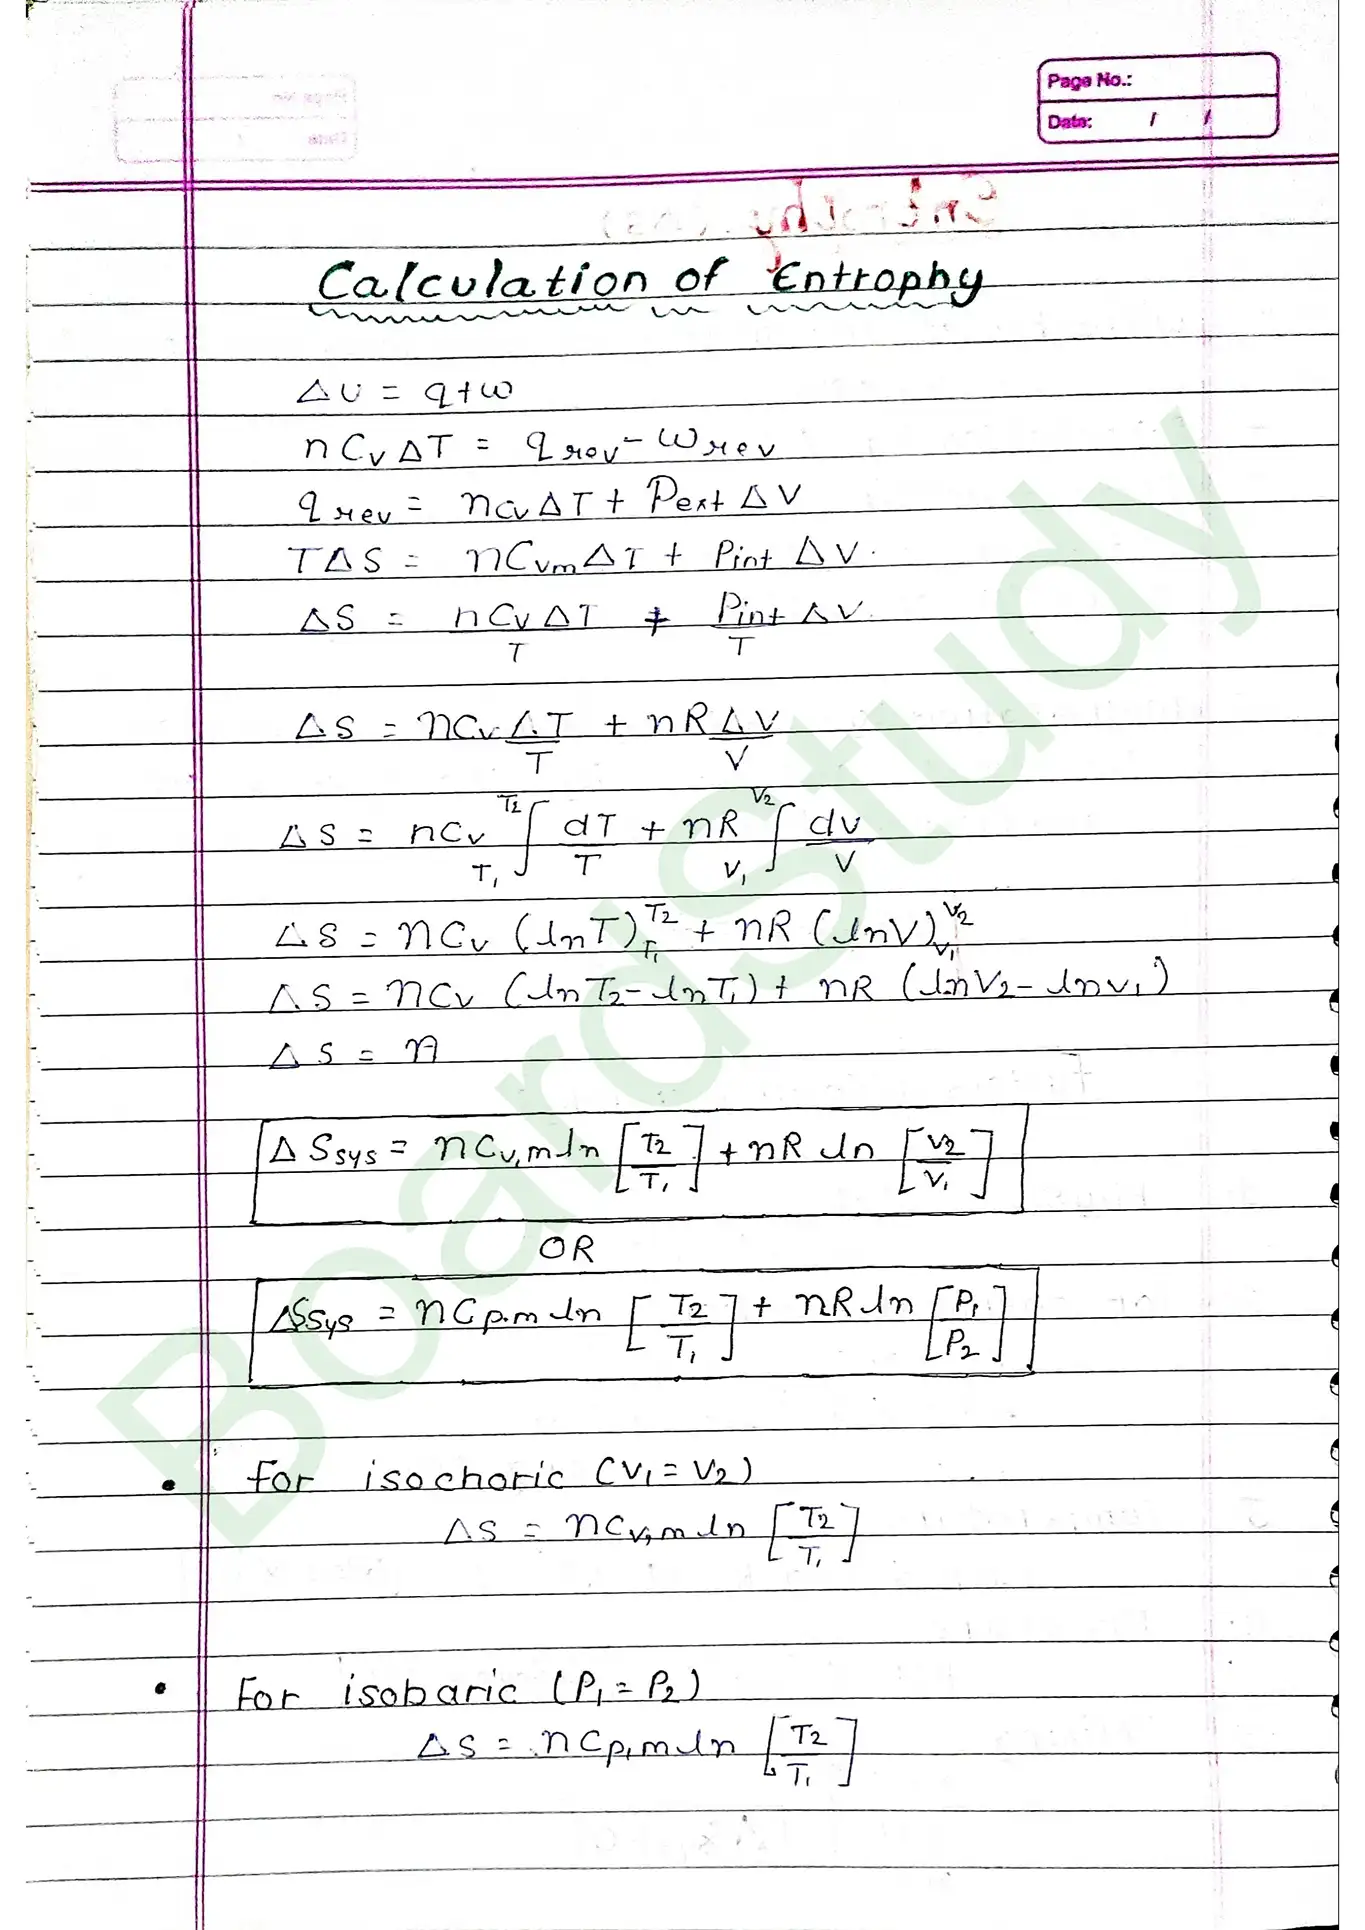 Page No.:
Date: / /
Calculation of Entrophy
ΔU = q+w
nCvΔT = qrev - wrev
qrev = nCvΔT + Pext ΔV
TΔS = nCvmΔT + Pint ΔV.
ΔS = nCvΔT/T + PintΔV/T
ΔS = nCv ΔT/T + nR ΔV/V
ΔS = nCv T1∫T2 dT/T + nR V1∫V2 dv/V
ΔS = nCv (lnT)T1^T2 + nR (lnV)V1^V2
ΔS = nCv (lnT2 - lnT1) + nR (lnV2 - lnV1)
ΔS = n
ΔSsys = nCv,m ln [T2/T1] + nR ln [V2/V1]
OR
ΔSsys = nCp.m ln [T2/T1] + nR ln [P1/P2]
• For isochoric (V1 = V2)
ΔS = nCv,m ln [T2/T1]
• For isobaric (P1 = P2)
ΔS = nCp,m ln [T2/T1]
BoardStudy